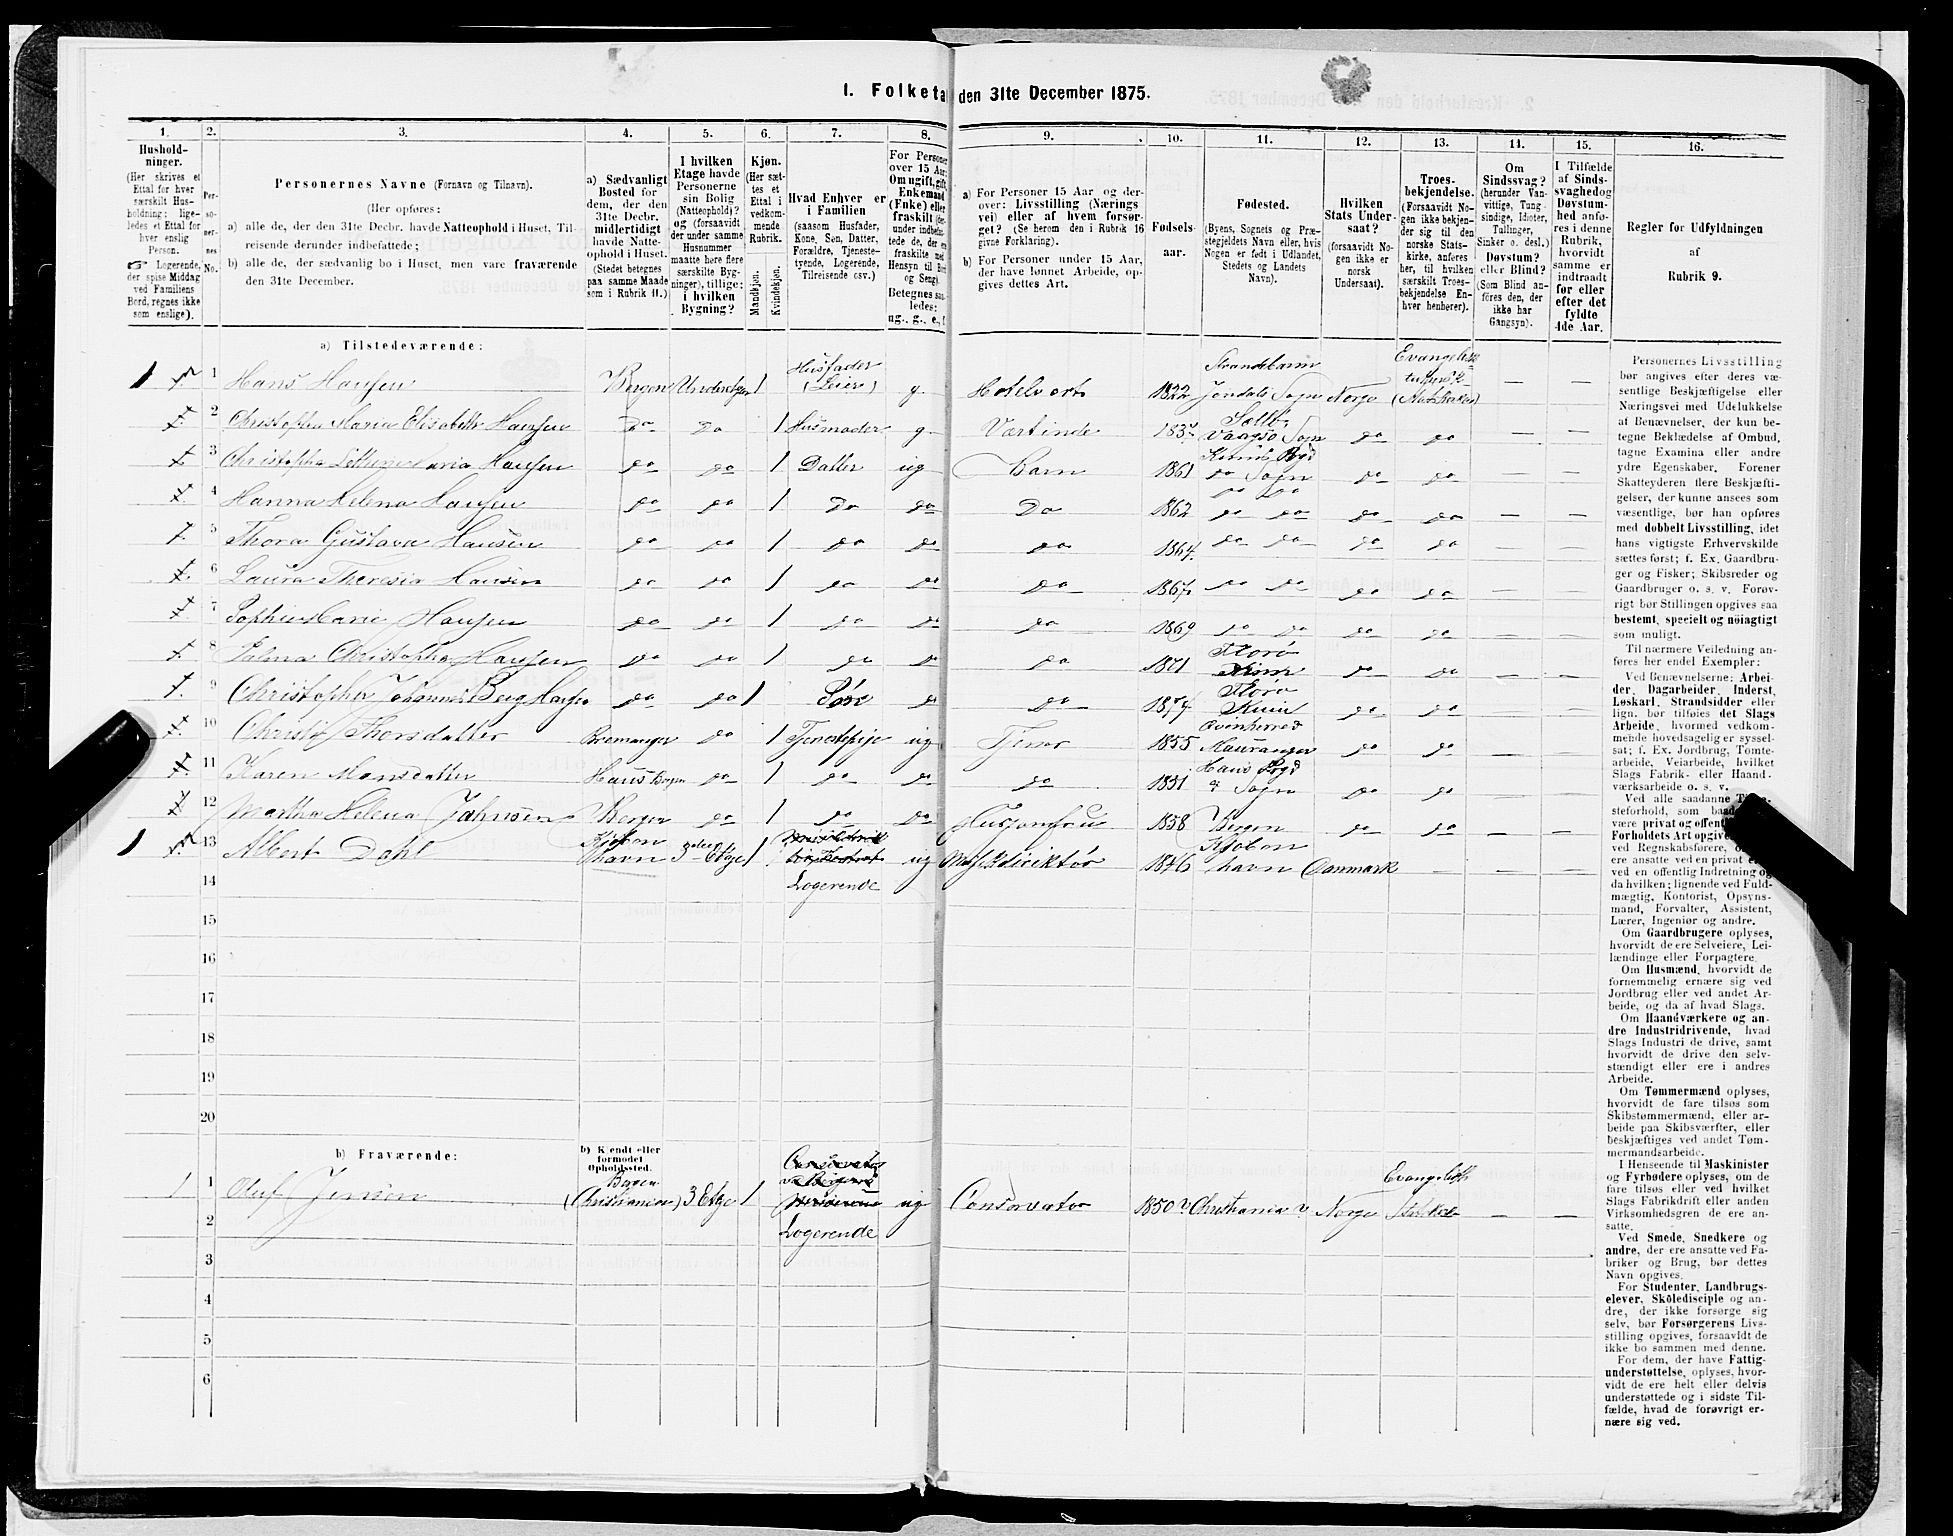 1. Folketa den 31te December 1875.
1. 2. 3. 4. 5. 6. 7. 8. 9. 10. 11. 12. 13. 14. 15. 16.
Hushold-
ninger.
(Her skrives et
Ettal for hver
særskilt Hus-
holdning; lige-
ledes et Ettal for
hver enslig
Person.
☞ Logerende,
der spise Middag
ved Familiens
Bord, regnes ikke
som enslige).
Per-
so-
ner-
nes
No.
Personernes Navne (Fornavn og Tilnavn).
(Her opføres:
a) alle de, der den 31te Decbr. havde Natteophold i Huset, Til-
reisende derunder indbefattede;
b) alle de, der sædvanlig bo i Huset, men vare fraværende
den 31te December.
a) Sædvanligt
Bosted for
dem, der den
31te Decbr.
midlertidigt
havde Natte-
ophold i Huset.
(Stedet betegnes
paa samme Maade
som i Rubrik 11.)
I hvilken
Etage havde
Personerne
sin Bolig
(Natteophold)?
og (forsaavidt
der under samme
Husnummer
maatte høre flere
særskilte Byg-
ninger), tillige:
i hvilken
Bygning?
Kjøn.
(Her sæt-
tes et
Ettal i
vedkom-
mende
Rubrik.
Mandkjøn.
Kvindekjøn.
Hvad Enhver er
i Familien
(saasom Husfader,
Kone, Søn, Datter,
Forældre, Tjeneste-
tyende, Logerende,
Tilreisende osv.)
For Personer
over 15 Aar:
Om ugift, gift,
Enkemand
(Enke) eller
fraskilt
a) For Personer 15 Aar og der-
over: Livsstilling (Nærings
vei) eller af hvem forsør-
get? (Se herom den i Rubrik 16
givne Forklaring).
b) For Personer under 15 Aar,
der have lønnet Arbeide, op-
gives dettes Art.
Fødsels-
aar.
Fødested.
(Byens, Sognets og Præ-
stegjeldets Navn eller, hvis
Nogen er født i Udlandet,
Stedets og Landets
Navn).
Hvilken
Stats Under-
saat?
(forsaavidt No-
gen ikke er
norsk
Undersaat).
Troes-
bekjendelse.
(Forsaavidt No-
gen ikke bekjen-
der sig til den
norske Stats-
kirke, anføres
her, til hvilken
særskilt Troes-
bekjendelse En-
hver henhører).
Om
Sindssvag?
(herunder Van-
vittige, Tung-
sindige, Idioter,
Tullinger,
Sinker o. desl.)
Døvstum?
eller Blind?
(Som Blind an-
føres den, der
ikke har
Gangsyn).
I Tilfælde
af Sinds-
svaghed og
Døvstum-
hed anfø-
res i denne
Rubrik,
hvorvidt
samme er
indtraadt
før eller
efter det
fyldte
4de Aar.
Regler for Udfyldningen
af
Rubrik 9.
a) Tilstedeværende:
1 1 Hans Hansen Bergen Underetagen 1 Husfader (Leier) g Hotelvert 1822 Strandebarm Jondals Sogn Norge
2 Christopha Maria Elisabeth Hansen Do Do 1 Husmoder g Vertinde 1837 Vaagsø Sogn do do
3 do do 1 Datter ug Barn 1861 do Sogn do do — —
4 Hanna Helena Hansen do do 1 Do do Do 1862 do do do do — —
5 Thora Gustava Hansen do do 1 do do do 1864 do do do do — —
6 Laura Theresia Hansen do do 1 do do do 1867 do do do do — —
7 Sophie Marie Hansen do do 1 do do do 1869 do do do do — —
8 Palma Christopha Hansen do do 1 do do do 1871 Florø Kinn do do — —
9 Christopher Johannes Berg Hansen do do 1 Søn do do 1874 Florø Kinn do do — —
10 Thorsdatter Bremanger do 1 Tjenestepige ug Tjener 1855 Qvinherred Mauranger do do — —
11 Karen Monsdatter Haus do 1 do do do 1851 Haus Sogn do do — —
12 Martha Helena Johnsen Bergen do 1 do do Husjomfru 1858 Bergen do do — —
1 13 Albert Dahl Kjøbenhavn 3die Etage 1 Logerende ug Musikdirektør 1846 Kjøbenhavn Danmark — — —
14
15
16
17
18
19
20
b) Fraværende:
b) Kjendt eller
formodet
Opholdssted.
1 1 Oluf Jenson Bergen (Christiania) 3 Etage 1 Logerende ug Conservator 1850? Christiania? Norge — —
2
3
4
5
6
Personernes Livsstilling
bør angives efter deres væ-
sentlige Beskjæftigelse eller
Næringsvei med Udelukkelse
af Benævnelser, der kun be-
tegne Beklædelse af Ombud,
tagne Examina eller andre
ydre Egenskaber. Forener
Skatteyderen flere Beskjæfti-
gelser, der kunne ansees som
væsentlige, bør han opføres
med dobbelt Livsstilling, idet
hans vigtigste Erhvervskilde
sættes først; f. Ex. Gaardbru-
ger og Fisker; Skibsreder og
Gaardbruger o. s. v. Forøv-
rigt bør Stillingen opgives saa
bestemt, specielt og nöiagtigt
som muligt.
Til nærmere Veiledning an-
føres her endel Exempler:
Ved Benævnelserne: Arbei-
der, Dagarbeider, Inderst,
Løskarl, Strandsidder eller
lign. bør tilføies det Slags
Arbeide, hvormed vedkom-
mende hovedsagelig er syssel-
sat; f. Ex. Jordbrug, Tomte-
arbeide, Veiarbeide, hvilket
Slags Fabrik- eller Haand-
værksarbeide o. s. v.
Ved alle saadanne
steforhold, som
være privat og offent
Forholdets Art opgiv
ved Regnskabsførere,
ere ansatte ved en privat
ved en offentlig Indretning og
da hvilken; lignende ved Fuld-
mægtig, Kontorist, Opsyns-
mand, Forvalter, Assistent,
Lærer, Ingeniør og andre.
Om Gaardbrugere oplyses,
hvorvidt de ere Selveiere, Lei-
lændinge eller Forpagtere.
Om Husmænd, hvorvidt de
fornemmelig ernære sig ved
Jordbrug eller ved andet Ar-
beide, og da af hvad Slags.
Om Haandværkere og an-
dre Industridrivende, hvad
Slags Industri de drive, samt
hvorvidt de drive den selv-
stændigt eller ere i andres
Arbeide.
Om Tømmermænd oplyses,
hvorvidt de fare tilsøs som
Skibstømmermænd, eller ar-
beide paa Skibsværfter, eller
beskjæftiges ved andet Tøm-
mermandsarbeide.
I Henseende til Maskinister
og Fyrbødere oplyses, om de
fare tilsøs eller ved hvilket
Slags Fabrikdrift eller anden
Virksomhedsgren de ere an-
satte.
Ved Smede, Snedkere og
andre, der ere ansatte ved Fa-
briker og Brug, bør dettes
Navn opgives.
For Studenter, Landbrugs-
elever, Skoledisciple og an-
dre, der ikke forsørge sig
selv, bør Forsørgerens Livs-
stilling opgives, forsaavidt de
ikke bo sammen med denne.
For dem, der have Fattig-
understøttelse, oplyses, hvor-
vidt de ere helt eller delvis
understøttede og i sidste Til-
fælde, hvad de forøvrigt er-
nære sig ved.